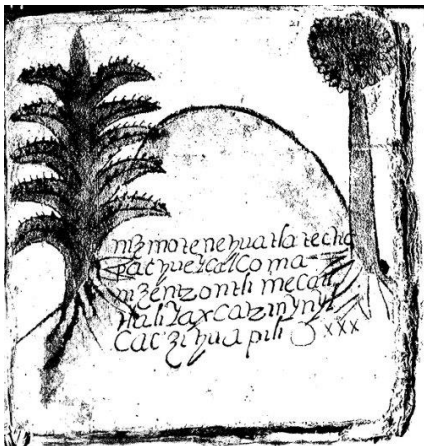 niz motenehua tlatecho
pa chueycalco ma
nizentzontli mecatl
tlali yaxcatzin yn yn
caczihuapili xxx